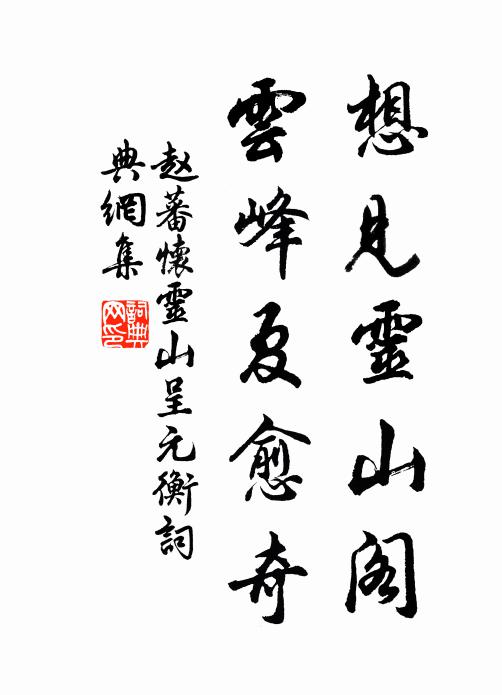 想見靈山阁
雲峰夏愈奇
赵蕃懷靈山呈元衡詞
典網集
詞典网印